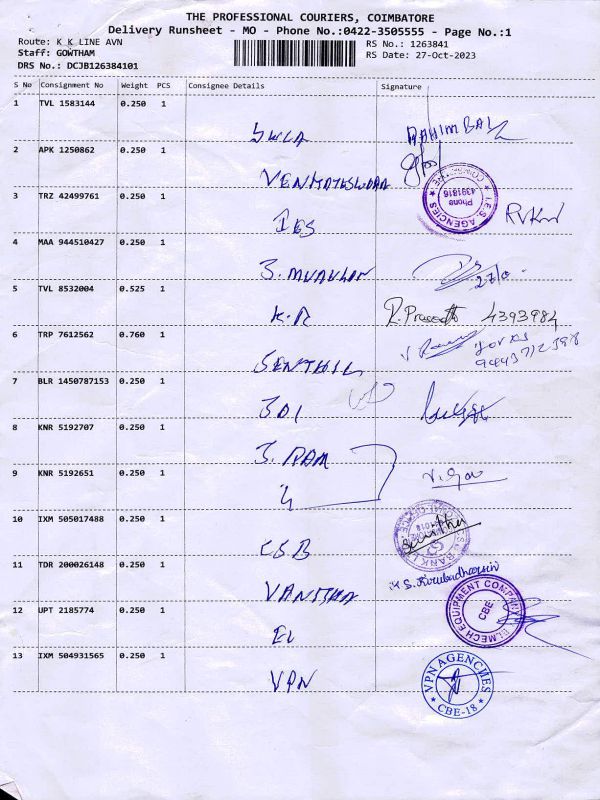 THE PROFESSIONAL COURIERS, COIMBATORE
Delivery Runsheet - MO - Phone No.:0422-3505555 - Page No.:1
Route: K K LINE AVN
RS No.: 1263841
Staff: GOWTHAM
RS Date: 27-Oct-2023
DRS No.: DCJB126384101
S No Consignment No Weight PCS Consignee Details Signature
1 TVL 1583144 0.250 1
RAHIM BA
2 APK 1250862 0.250 1
3 TRZ 42499761 0.250 1
IES
I.E.S. AGENCIES
Phone
4391816
4 MAA 944510427 0.250 1
5 TVL 8532004 0.525 1
K.R R. Prasath 4393984
6 TRP 7612562 0.760 1
SENTHIL
7 BLR 1450787153 0.250 1
8 KNR 5192707 0.250 1
J. RAM
9 KNR 5192651 0.250 1
10 IXM 505017488 0.250 1
CSB
11 TDR 200026148 0.250 1
VANITHA
12 UPT 2185774 0.250 1
EL
ELMECH EQUIPMENT COMPANY
CBE
13 IXM 504931565 0.250 1
VPN
VPN AGENCIES
CBE-18